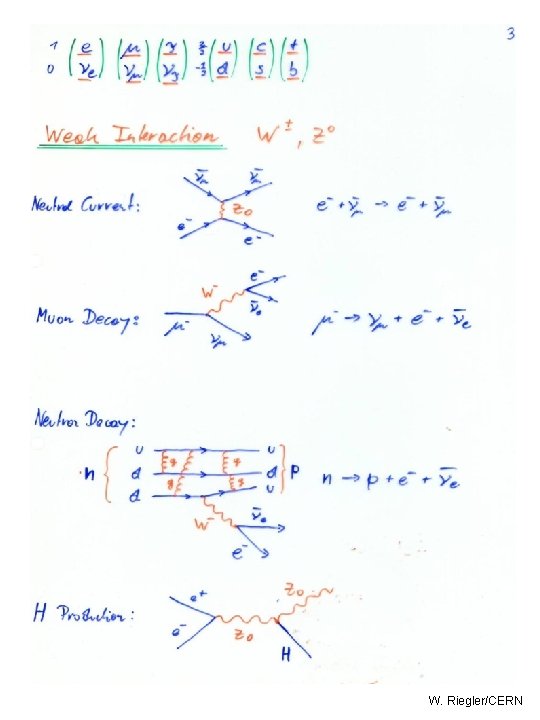 3
1 (e) (μ) (τ) 2/3 (u) (c) (t)
0 (νe) (νμ) (ντ) -1/3 (d) (s) (b)
Weak Interaction W±, Z⁰
Neutral Current:
ν̄μ ν̄μ
Z₀
e⁻ e⁻
e⁻ + ν̄μ → e⁻ + ν̄μ
Muon Decay:
W⁻ e⁻
ν̄e
μ⁻ νμ
μ⁻ → νμ + e⁻ + ν̄e
Neutron Decay:
u u
g g
n { d d } p
g g
d u
W⁻ ν̄e
e⁻
n → p + e⁻ + ν̄e
H Production:
e⁺ Z₀
e⁻ Z₀
H
W. Riegler/CERN